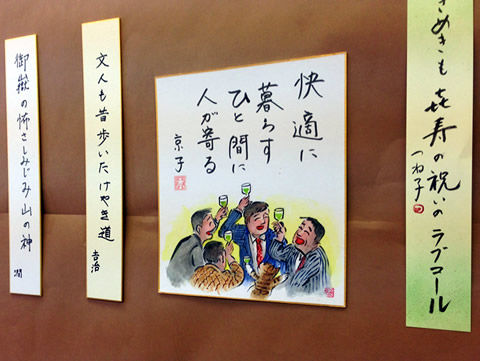 きめきも㐂寿の祝いのラブコール
つね子
快適に
暮らす
ひと間に
人が寄る
京子
文人も昔歩いたけやき道
吉治
御嶽の怖さしみじみ山の神
潤